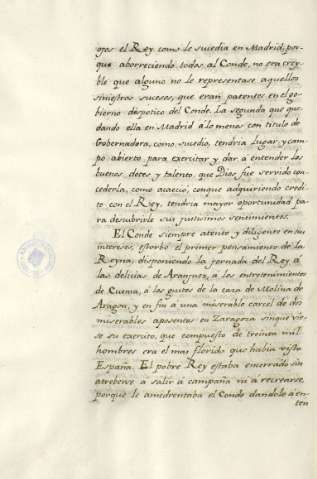 ojos el Rey como le sucedia en Madrid, por-
que aborreciendo todos al Conde, no era crey-
ble que alguno no le representase aquellos
siniestros sucesos, que eran patentes en el go-
bierno despotico del Conde. La segunda que que-
dando ella en Madrid a lo menos con titulo de
Gobernadora, como sucedio, tendria lugar, y cam-
po abierto para exercitar y dar á entender los
buenos dotes y talento, que Dios fue servido con-
cederla, como acaeció, conque adquiriendo credi-
to con el Rey, tendria mayor oportunidad pa-
ra descubrirle sus purisimos sentimientos.
El Conde siempre atento y diligente en sus
intereses, estorbó el primer pensamiento de la
Reyna, disponiendo la jornada del Rey á
las delicias de Aranjuez, á los entretenimientos
de Cuenca, á los gustos de la caza de Molina de
Aragon, y en fin á una miserable carcel de dos
miserables aposentos en Zaragoza sin que vie-
se su exercito, que compuesto de treinta mil
hombres era el mas florido que habia visto
España. El pobre Rey estaba encerrado sin
atreverse a salir á campaña ni á recrearse,
porque le amedrentaba el Conde dandole á en-
ten